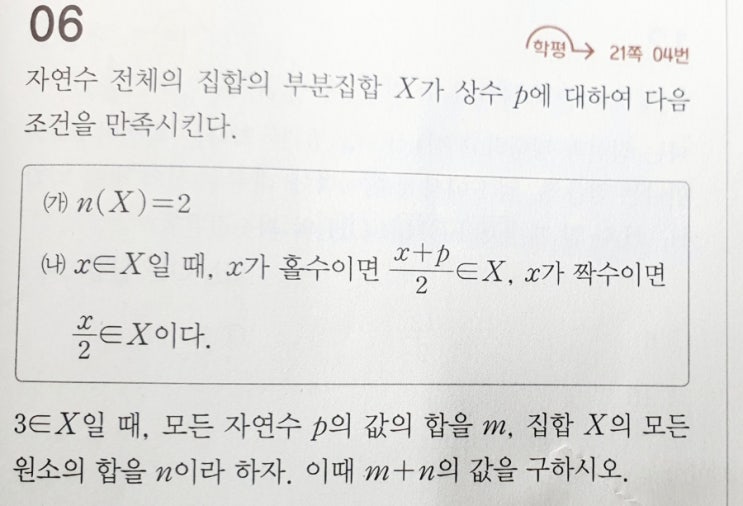 06
학평 → 21쪽 04번
자연수 전체의 집합의 부분집합 X가 상수 p에 대하여 다음
조건을 만족시킨다.
㈎ n(X)=2
㈏ x∈X일 때, x가 홀수이면 (x+p)/2∈X, x가 짝수이면
x/2∈X이다.
3∈X일 때, 모든 자연수 p의 값의 합을 m, 집합 X의 모든
원소의 합을 n이라 하자. 이때 m+n의 값을 구하시오.